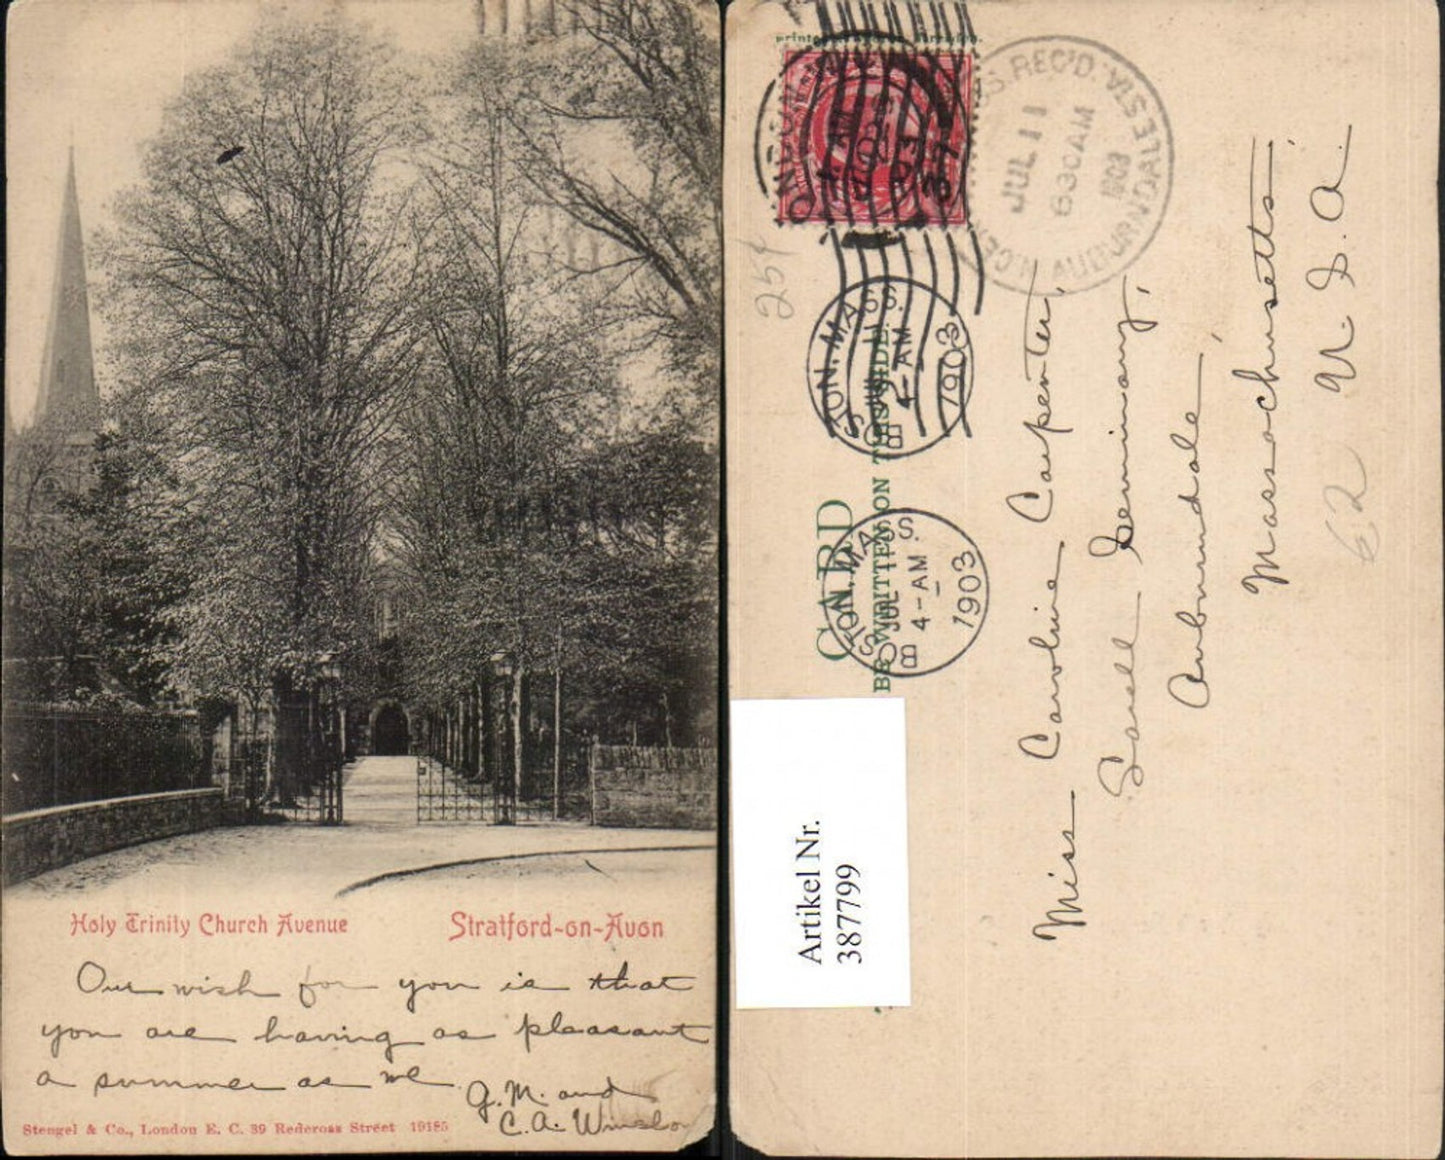 Holy Trinity Church Avenue
Stratford-on-Avon
Our wish for you is that
you are having as pleasant
a summer as we.
G. M. and
C. A. Winslo
Stengel & Co., London E. C. 39 Redcross Street 19185
LONDON
REC'D.
JUL 11
630AM
1903
AUBURNDALE STA
BOSTON, MASS.
4-AM
1903
BOSTON, MASS.
JUL 11
4-AM
1903
CARD
BE WRITTEN ON THIS SIDE.
254
Miss Caroline Carpenter,
Lasell Seminary,
Auburndale,
Massachusetts,
U. S. A.
62
Artikel Nr.
387799